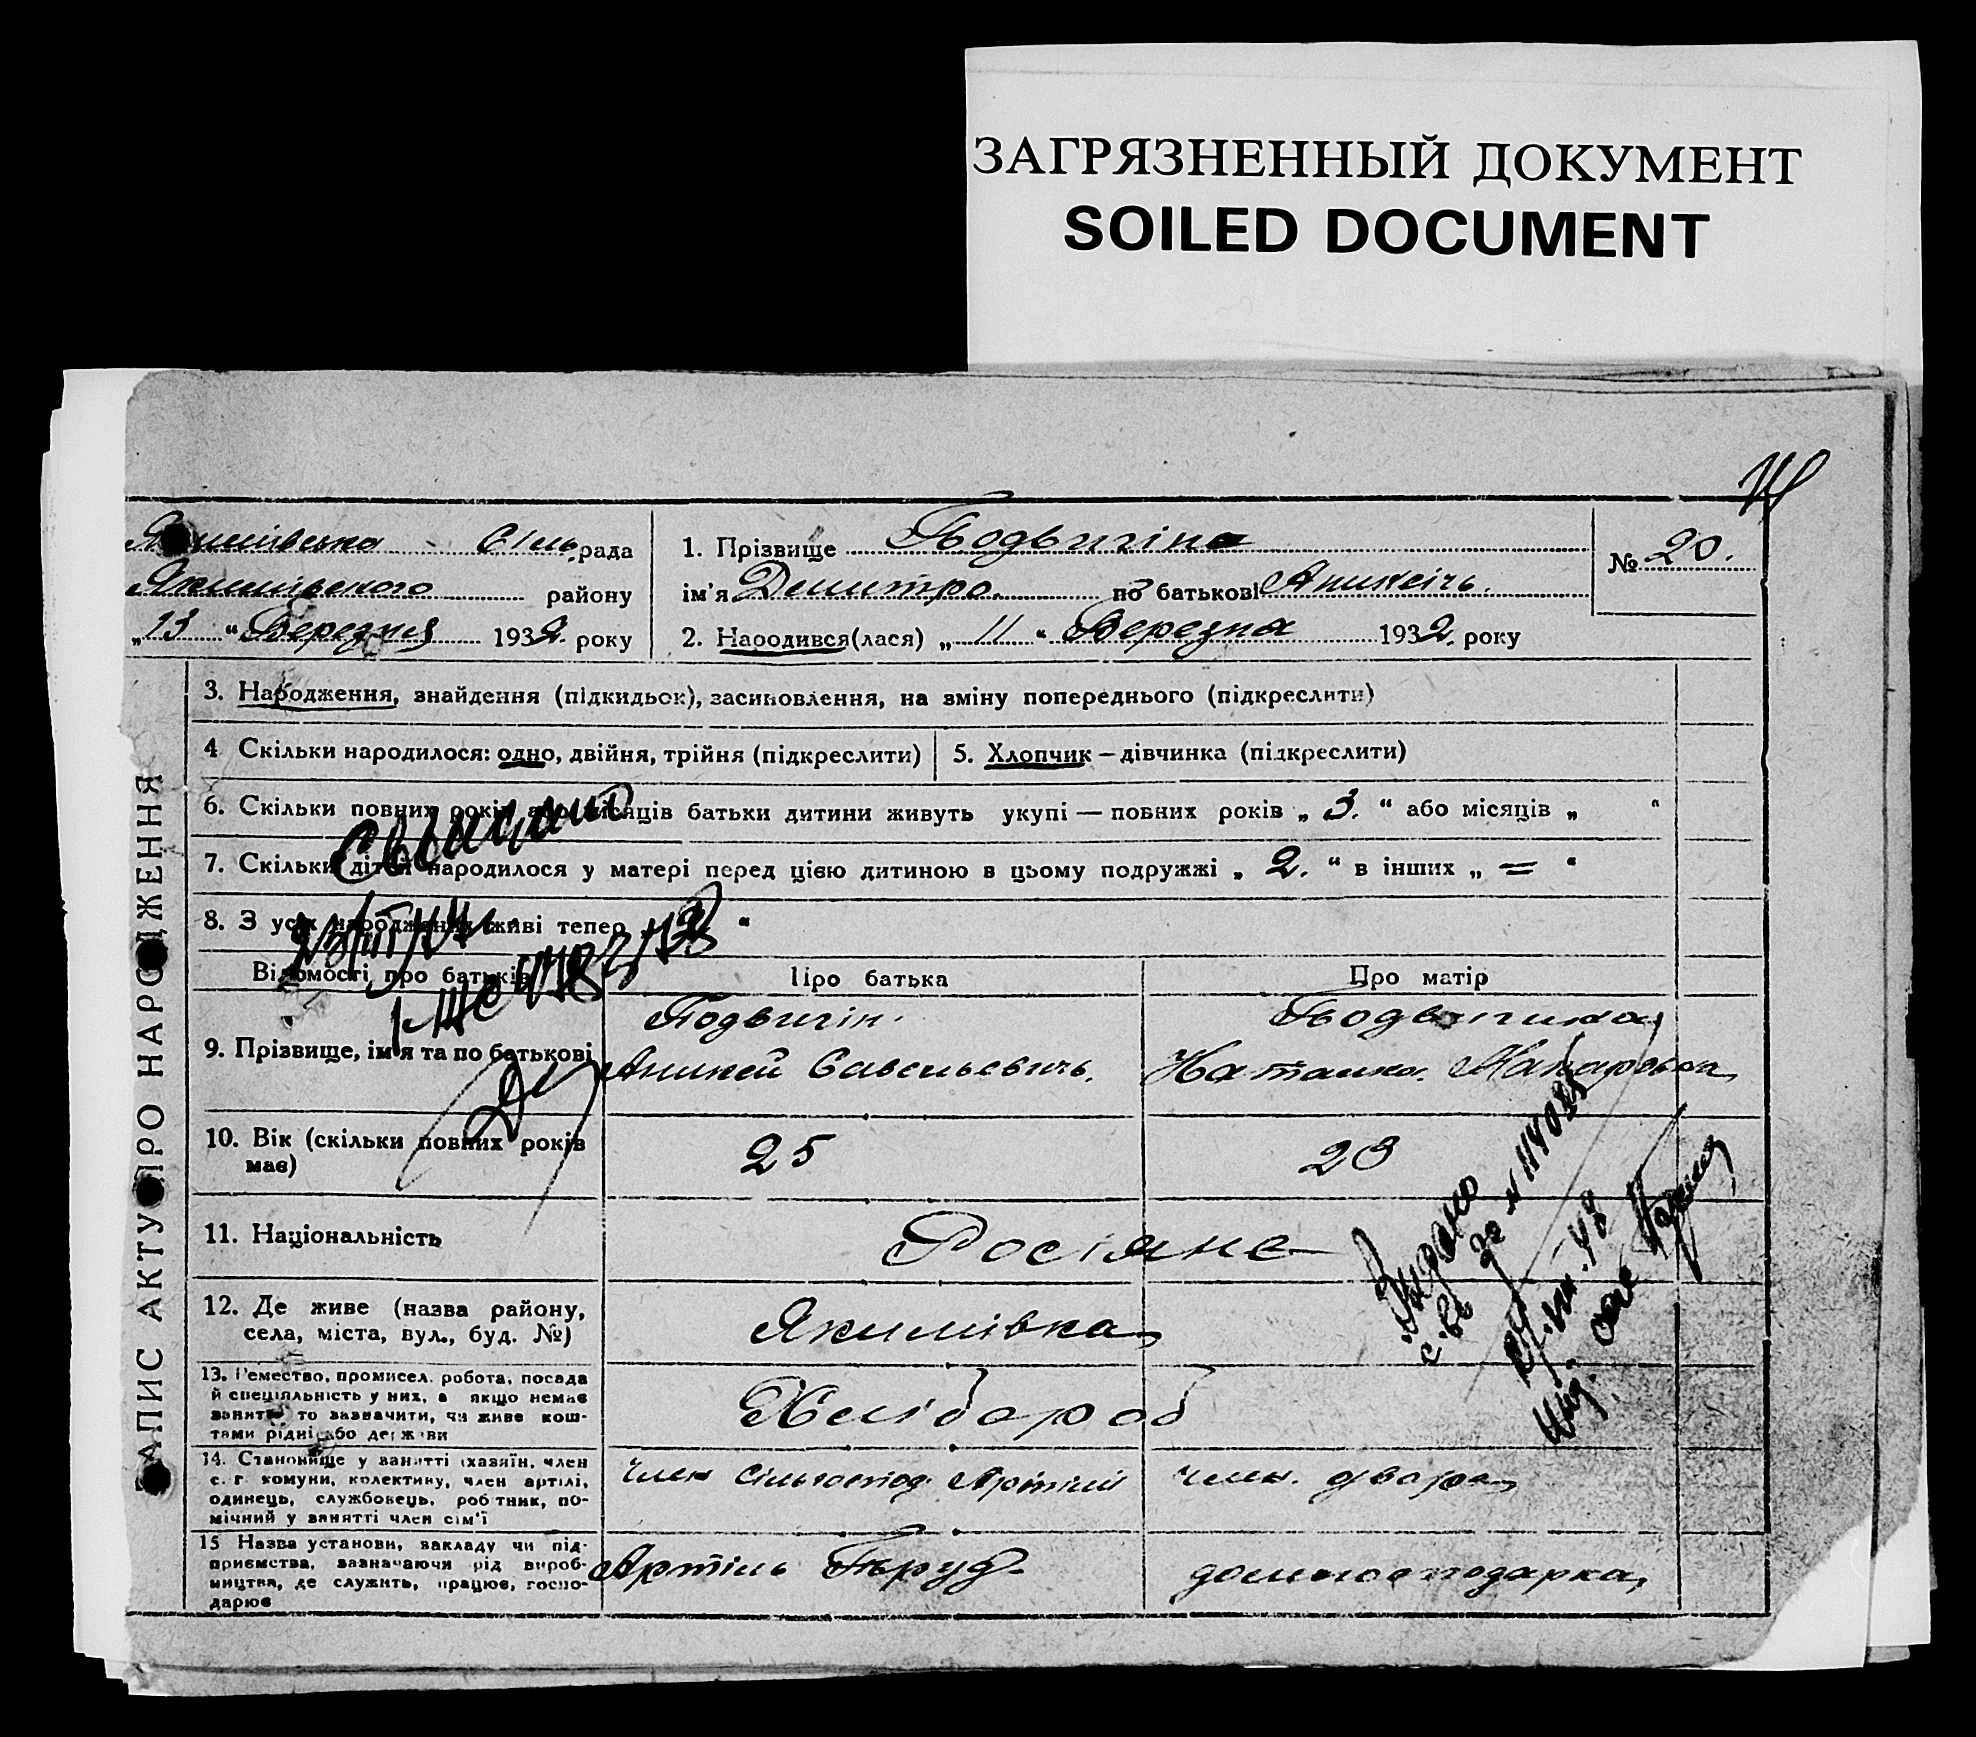 ЗАГРЯЗНЕННЫЙ ДОКУМЕНТ
SOILED DOCUMENT
Якимівська Сіль. рада
Якимівського району
„13“ Березня 1932. року
1. Прізвище Подвигіна
ім'я Дмитро. по батькові Аникеічь.
№ 20.
2. Народився(лася) „11“ Березня 1932. року
ЗАПИС АКТУ ПРО НАРОДЖЕННЯ
3. Народження, знайдення (підкидьок), засиновлення, на зміну попереднього (підкреслити)
4 Скільки народилося: одно, двійня, трійня (підкреслити)
5. Хлопчик — дівчинка (підкреслити)
6. Скільки повних років або місяців батьки дитини живуть укупі — повних років „ 3. “ або місяців „ “
7. Скільки дітей народилося у матері перед цією дитиною в цьому подружжі „ 2. “ в інших „ = “
8. З усіх народжених живі тепер „ “
Відомості про батьків
Про батька
Про матір
9. Прізвище, ім'я та по батькові
Подвигін.
Аникей Савельевичь.
Подвигина
Наталка. Макаровна
10. Вік (скільки повних років
має)
25
23
11. Національність
Росіяне
12. Де живе (назва району,
села, міста, вул., буд. №)
Якимівка
13. Ремество, промисел, робота, посада
й спеціяльність у них, а якщо немає
заняття то зазначити, чи живе кош-
тами рідні або держави
Хлібороб
14. Становище у занятті (хазяїн, член
с. г. комуни, колективу, член артілі,
одинець, службовець, робітник, по-
мічний у занятті член сім'ї
член сільгоспод Артілі
член. двора
15 Назва установи, закладу чи під-
приємства, зазначаючи рід вироб-
ництва, де служить, працює, госпо-
дарює
Артіль Труд.
домгосподарка,
Видано
с. во за № 114025